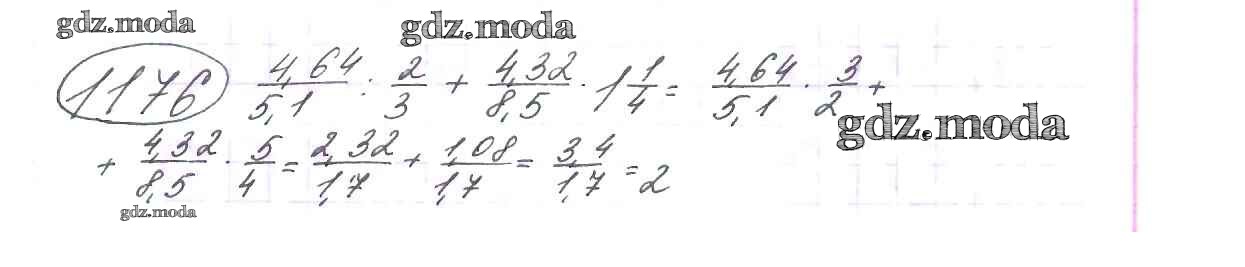 gdz.moda gdz.moda
1176 4,64/5,1 : 2/3 + 4,32/8,5 · 1 1/4 = 4,64/5,1 · 3/2 +
gdz.moda
+ 4,32/8,5 · 5/4 = 2,32/1,7 + 1,08/1,7 = 3,4/1,7 = 2
gdz.moda